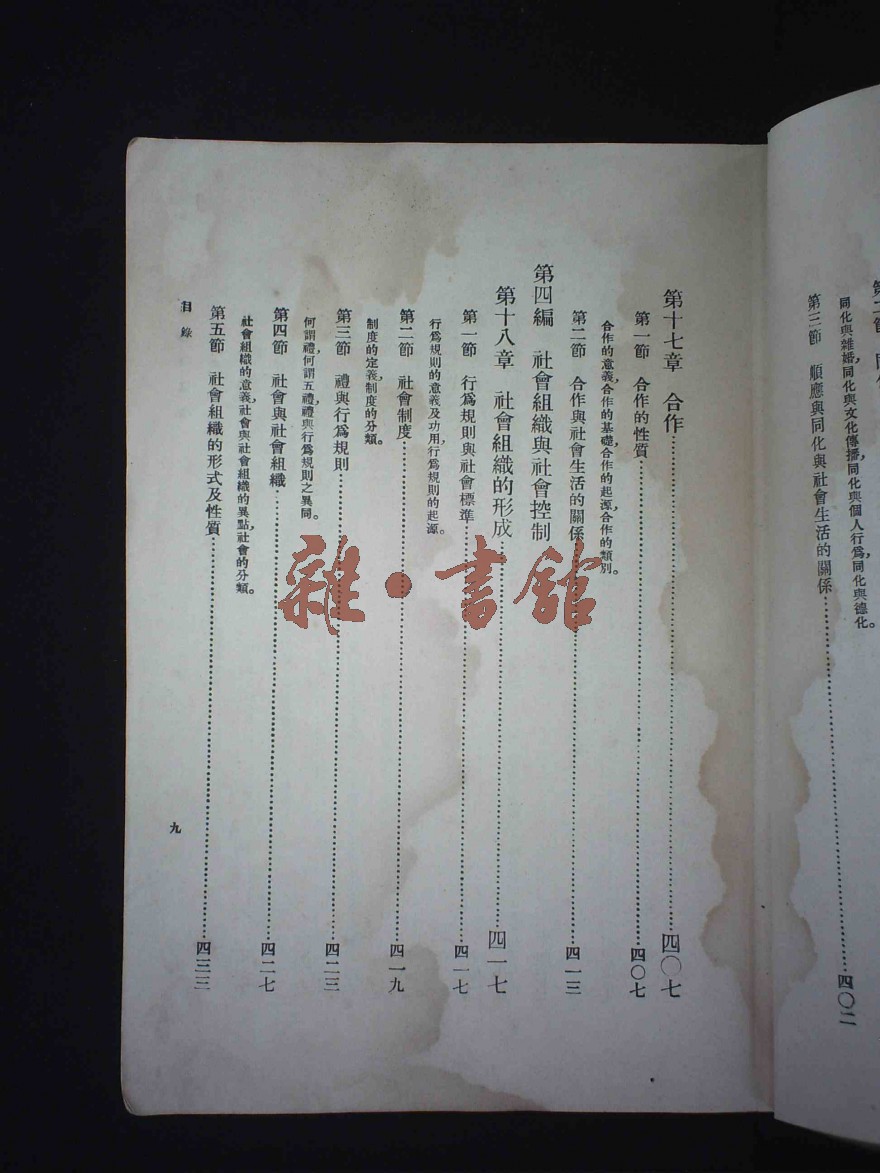 同化與雜婚，同化與文化傳播，同化與個人行爲，同化與德化。
第三節 順應與同化與社會生活的關係……四〇二
第十七章 合作……四〇七
第一節 合作的性質……四〇七
合作的意義，合作的基礎，合作的起源，合作的類別。
第二節 合作與社會生活的關係……四一三
第四編 社會組織與社會控制
第十八章 社會組織的形成……四一七
第一節 行爲規則與社會標準……四一七
行爲規則的意義及功用，行爲規則的起源。
第二節 社會制度……四一九
制度的定義，制度的分類。
第三節 禮與行爲規則……四二三
何謂禮，何謂五禮，禮與行爲規則之異同。
第四節 社會與社會組織……四二七
社會組織的意義，社會與社會組織的異點，社會的分類。
第五節 社會組織的形式及性質……四三三
目錄
九
雜·書館